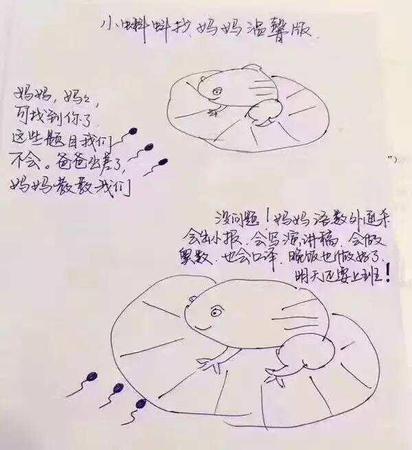 小蝌蚪找妈妈温馨版
妈妈,妈妈,
可找到你了
这些题目我们
不会。爸爸出差了,
妈妈教教我们
没问题!妈妈语数外通杀
会出小报、会写演讲稿、会做
奥数、也会口译、晚饭也做好了
明天还要上班!